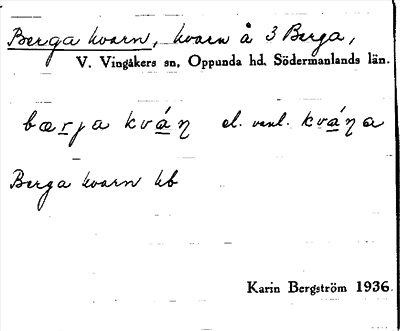 Berga kvarn, kvarn å 3 Berga,
V. Vingåkers sn, Oppunda hd, Södermanlands län.
bærja kváṇ el. vanl. kváṇa
Berga kvarn kb
Karin Bergström 1936.